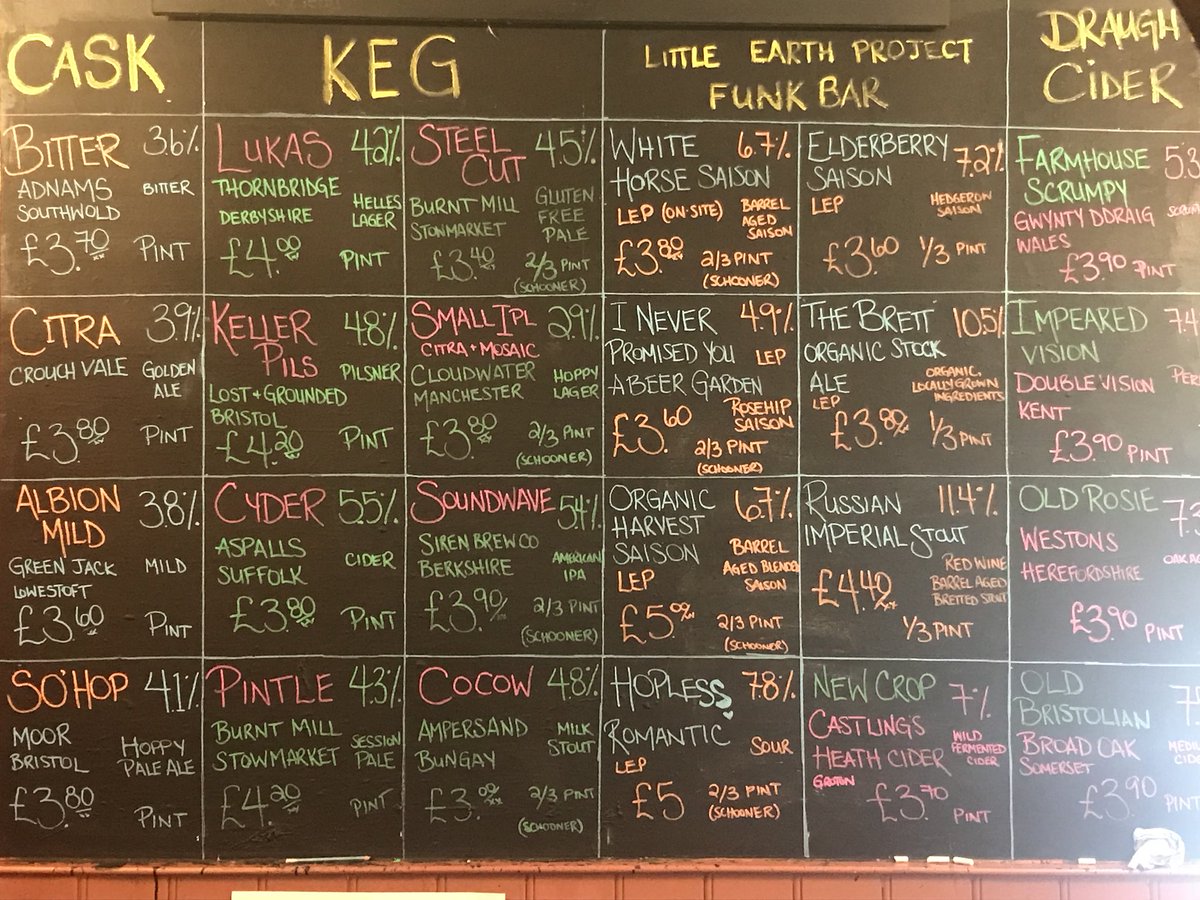 CASK
BITTER 3.6%
ADNAMS BITTER
SOUTHWOLD
£3.70 PINT
CITRA 3.9%
CROUCH VALE GOLDEN
ALE
£3.80 PINT
ALBION
MILD 3.8%
GREEN JACK MILD
LOWESTOFT
£3.60 PINT
SO'HOP 4.1%
MOOR HOPPY
BRISTOL PALE ALE
£3.80 PINT
KEG
LUKAS 4.2%
THORNBRIDGE HELLES
DERBYSHIRE LAGER
£4.00 PINT
STEEL
CUT 4.5%
BURNT MILL GLUTEN
STONMARKET FREE
PALE
£3.40 2/3 PINT
(SCHOONER)
KELLER 4.8%
PILS PILSNER
LOST + GROUNDED
BRISTOL
£4.20 PINT
SMALL IPL 2.9%
CITRA + MOSAIC
CLOUDWATER HOPPY
MANCHESTER LAGER
£3.80 2/3 PINT
(SCHOONER)
CYDER 5.5%
ASPALLS CIDER
SUFFOLK
£3.80 PINT
SOUNDWAVE 5.4%
SIREN BREW CO AMERICAN
BERKSHIRE IPA
£3.90 2/3 PINT
(SCHOONER)
PINTLE 4.3%
BURNT MILL SESSION
STOWMARKET PALE
£4.20 PINT
COCOW 4.8%
AMPERSAND MILK
BUNGAY STOUT
£3.00 2/3 PINT
(SCHOONER)
LITTLE EARTH PROJECT
FUNK BAR
WHITE 6.7%
HORSE SAISON
LEP (ON-SITE) BARREL
AGED
SAISON
£3.80 2/3 PINT
(SCHOONER)
ELDERBERRY 7.2%
SAISON
LEP HEDGEROW
SAISON
£3.60 1/3 PINT
I NEVER 4.9%
PROMISED YOU LEP
A BEER GARDEN
ROSEHIP
SAISON
£3.60 2/3 PINT
(SCHOONER)
THE BRETT 10.5%
ORGANIC STOCK
ALE ORGANIC,
LOCALLY GROWN
INGREDIENTS
LEP
£3.80 1/3 PINT
ORGANIC 6.7%
HARVEST
SAISON BARREL
LEP AGED BLENDED
SAISON
£5.00 2/3 PINT
(SCHOONER)
RUSSIAN 11.4%
IMPERIAL STOUT
RED WINE
BARREL AGED
BRETTED STOUT
£4.40
1/3 PINT
HOPLESS 7.8%
ROMANTIC SOUR
LEP
£5 2/3 PINT
(SCHOONER)
NEW CROP 7%
CASTLINGS WILD
HEATH CIDER FERMENTED
CIDER
GROTON
£3.70 PINT
DRAUGH
CIDER
FARMHOUSE 5.3
SCRUMPY
GWYNTY DDRAIG
WALES
£3.90 PINT
IMPEARED 7.4
VISION
DOUBLE VISION PER
KENT
£3.90 PINT
OLD ROSIE 7.
WESTONS OAK
HEREFORDSHIRE
£3.90 PINT
OLD 7
BRISTOLIAN
BROAD OAK
SOMERSET
£3.90 PINT